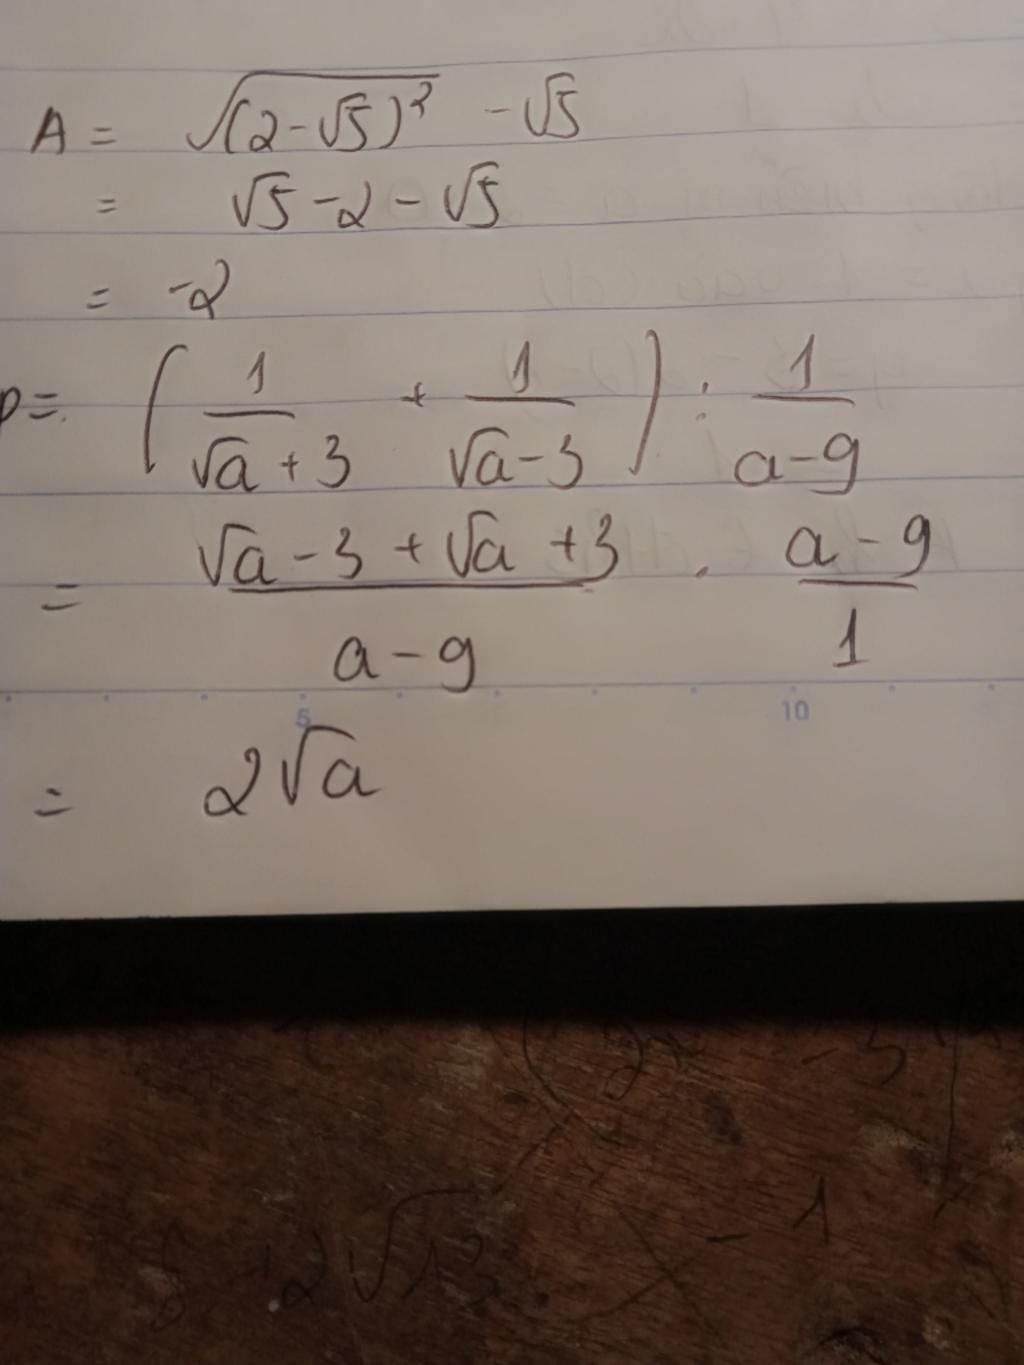 A = √(2-√5)² - √5
= √5 - 2 - √5
= -2
P = (1/(√a + 3) + 1/(√a - 3)) : 1/(a - 9)
= (√a - 3 + √a + 3)/(a - 9) . (a - 9)/1
5 10
= 2√a